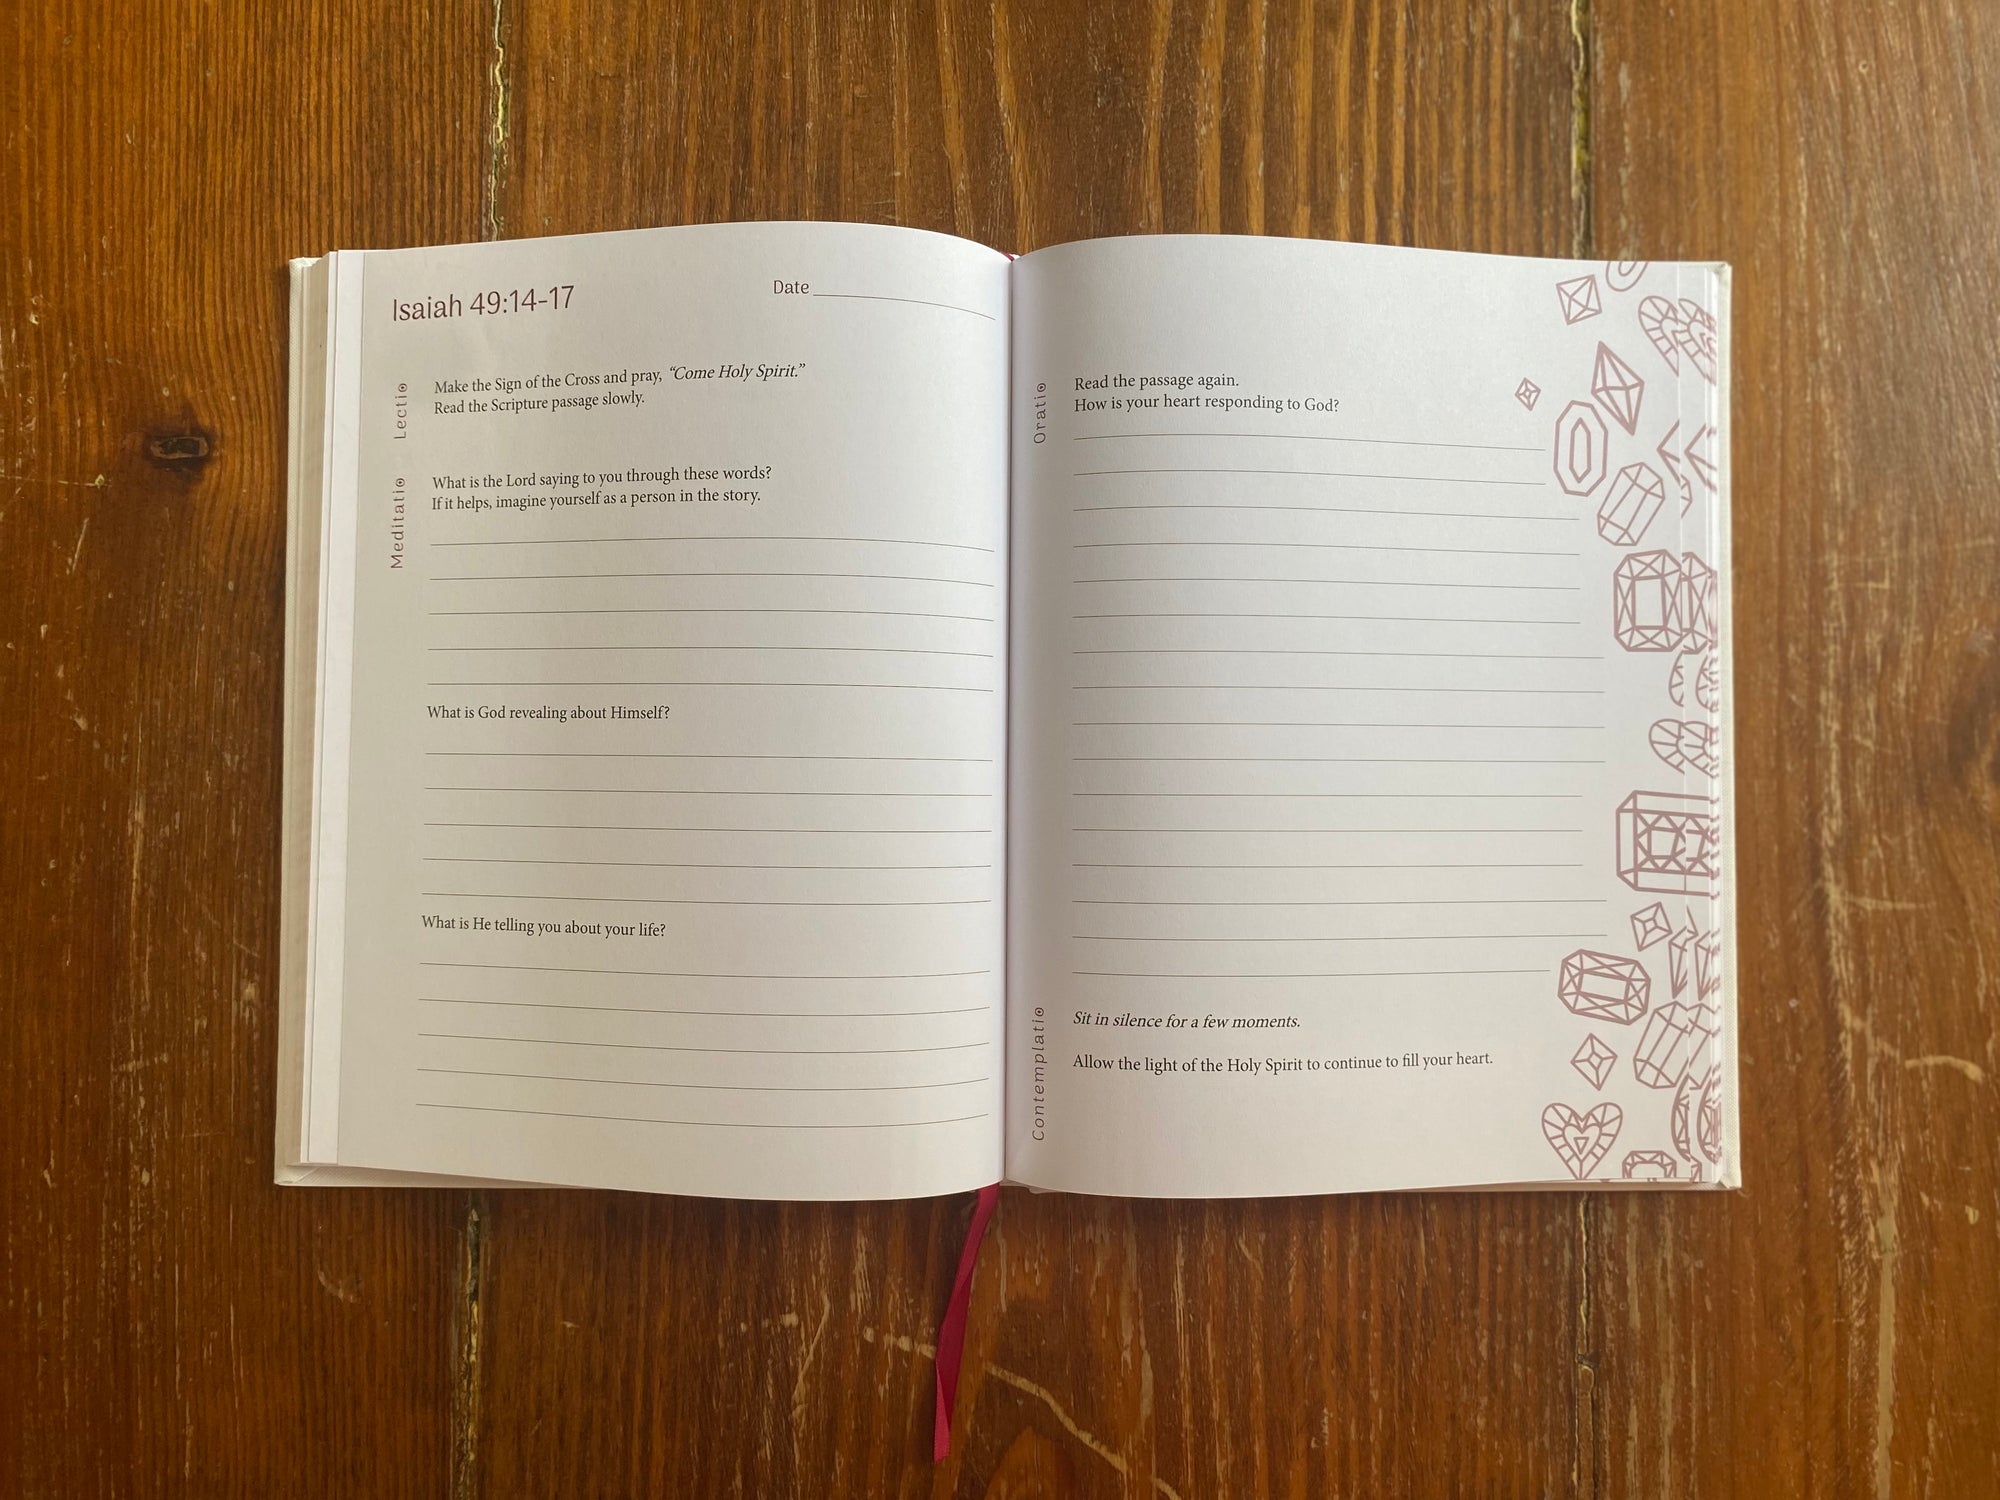 Isaiah 49:14-17
Date
Lectio
Make the Sign of the Cross and pray, “Come Holy Spirit.”
Read the Scripture passage slowly.
Meditatio
What is the Lord saying to you through these words?
If it helps, imagine yourself as a person in the story.
What is God revealing about Himself?
What is He telling you about your life?
Oratio
Read the passage again.
How is your heart responding to God?
Contemplatio
Sit in silence for a few moments.
Allow the light of the Holy Spirit to continue to fill your heart.